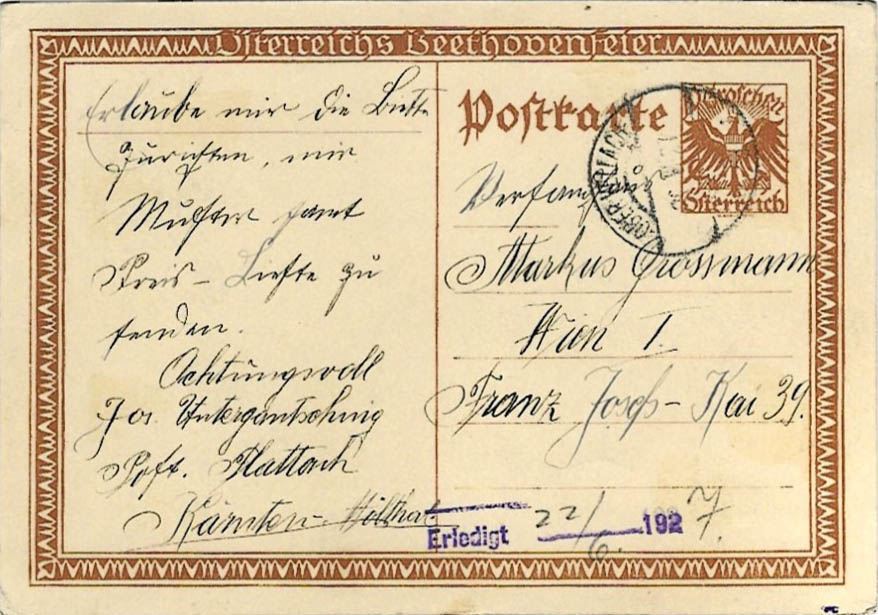 Österreichs Beethovenfeier
Erlaube mir die Bitte
mir
Muster samt
Preis-Liste zu
senden.
Achtungsvoll
Jos. Untergantschnig
Post. Flattach
Kärnten-Mölltal
Postkarte
Groschen
Österreich
Markus Grossmann
Wien I.
Franz Josefs-Kai 39.
Erledigt 22/6. 1927.